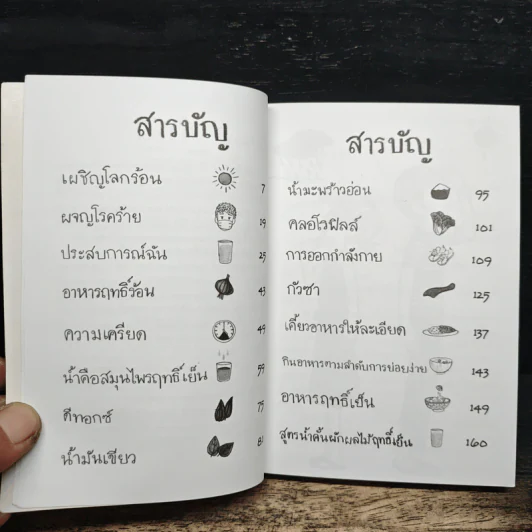 สารบัญ
เผชิญโลกร้อน 7
ผจญโรคร้าย 19
ประสบการณ์ฉัน 25
อาหารฤทธิ์ร้อน 43
ความเครียด 49
น้ำคือสมุนไพรฤทธิ์เย็น 59
ดีทอกซ์ 75
น้ำมันเขียว 81
สารบัญ
น้ำมะพร้าวอ่อน 95
คลอโรฟิลล์ 101
การออกกำลังกาย 109
กัวซา 125
เคี้ยวอาหารให้ละเอียด 137
กินอาหารตามลำดับการย่อยง่าย 143
อาหารฤทธิ์เย็น 149
สูตรน้ำคั้นผักผลไม้ฤทธิ์เย็น 160